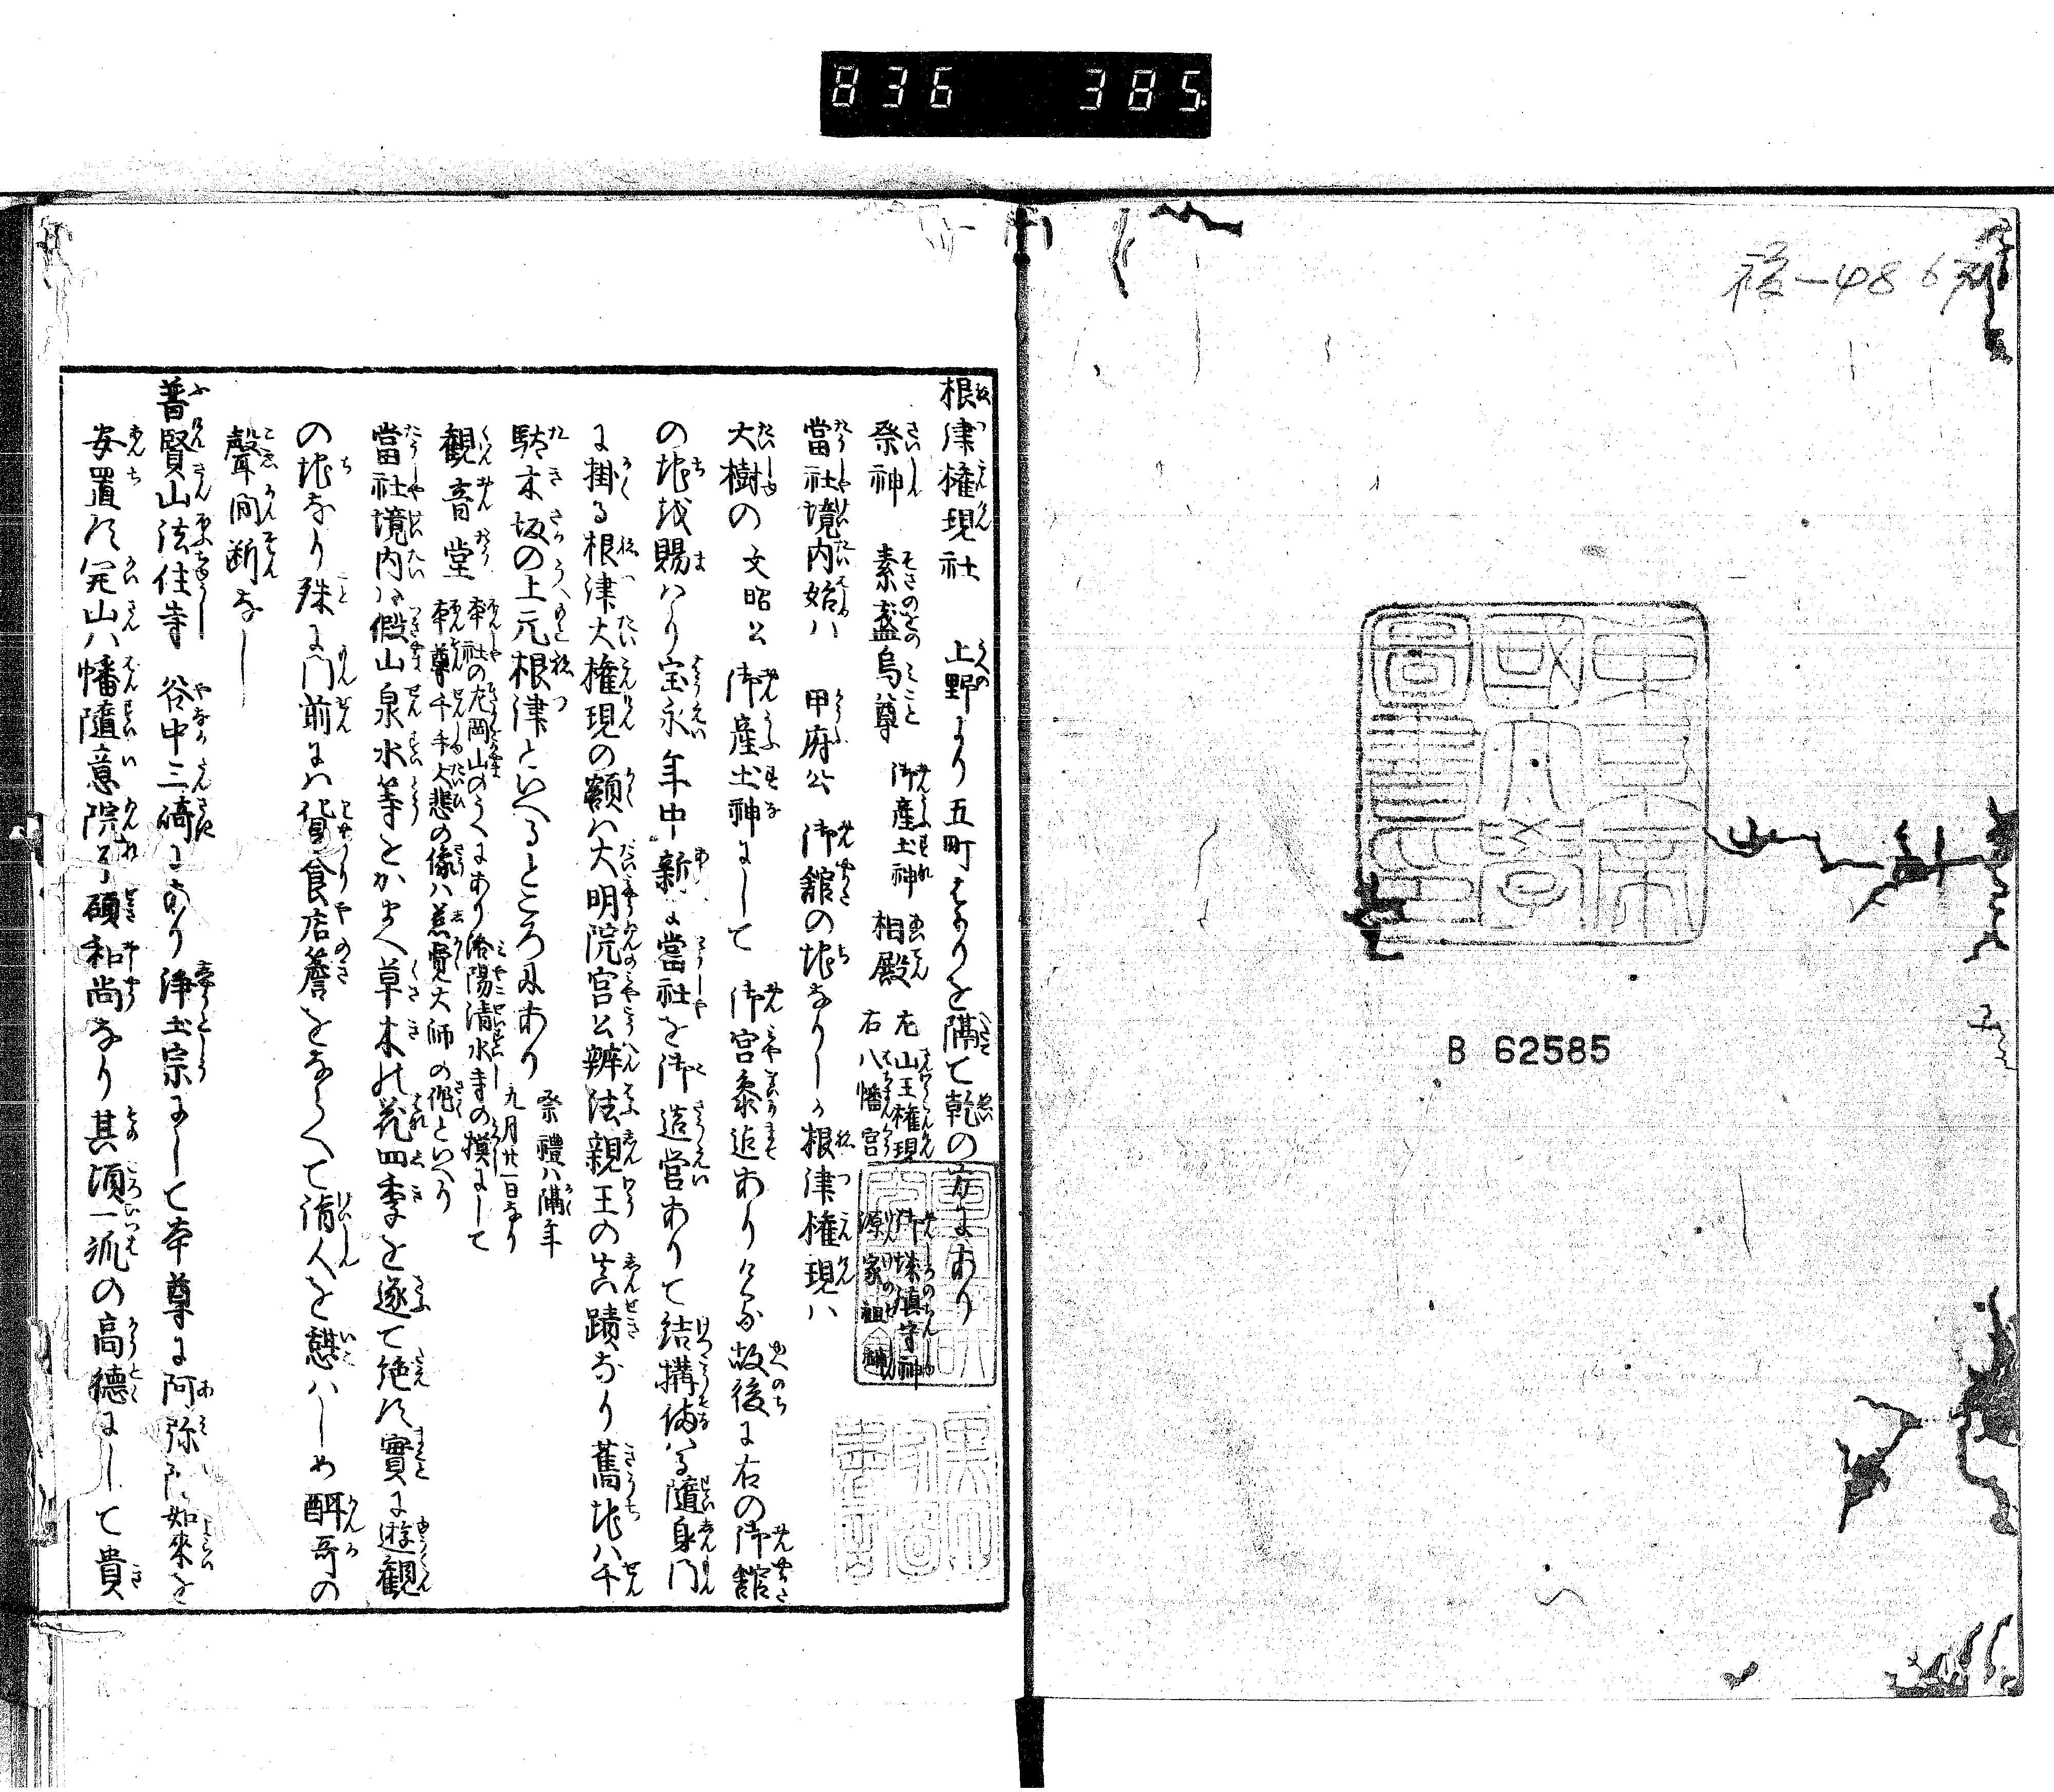 836 385
B 62585
東京帝國大學圖書印
根津権現社 上野より五町ばかりを隔て乾の方にあり
祭神 素盞烏尊 御産土神 相殿 左山王権現 御城鎮守神
右八幡宮 源家祖神
當社境内始ハ 甲府公 御舘の地なりしか根津権現ハ
大樹の 文昭公 御産土神にして 御宮参迄ありける故後に右の御舘
の地を賜ハり宝永年中新に當社を御造営ありて結搆備ハる随身門
に掛る根津大権現の額ハ大明院宮公辨法親王の真蹟なり舊地ハ千
駄木坂の上元根津といへるところにあり 祭禮ハ隔年
九月廿一日なり
観音堂 本社の左岡山のうへにあり洛陽清水寺の摸にして
本尊千手大悲の像ハ慈覚大師の作といへり
當社境内ハ假山泉水等をかまへ草木の花四季を逐て絶ず實に遊観
の地なり殊に門前にハ貸食店簷をならへて諸人を憩ハしめ酣哥の
聲間断なし
普賢山法住寺 谷中三崎にあり浄土宗にして本尊に阿弥陀如来を
安置す開山ハ幡随意院了碩和尚なり其頃一派の高徳にして貴